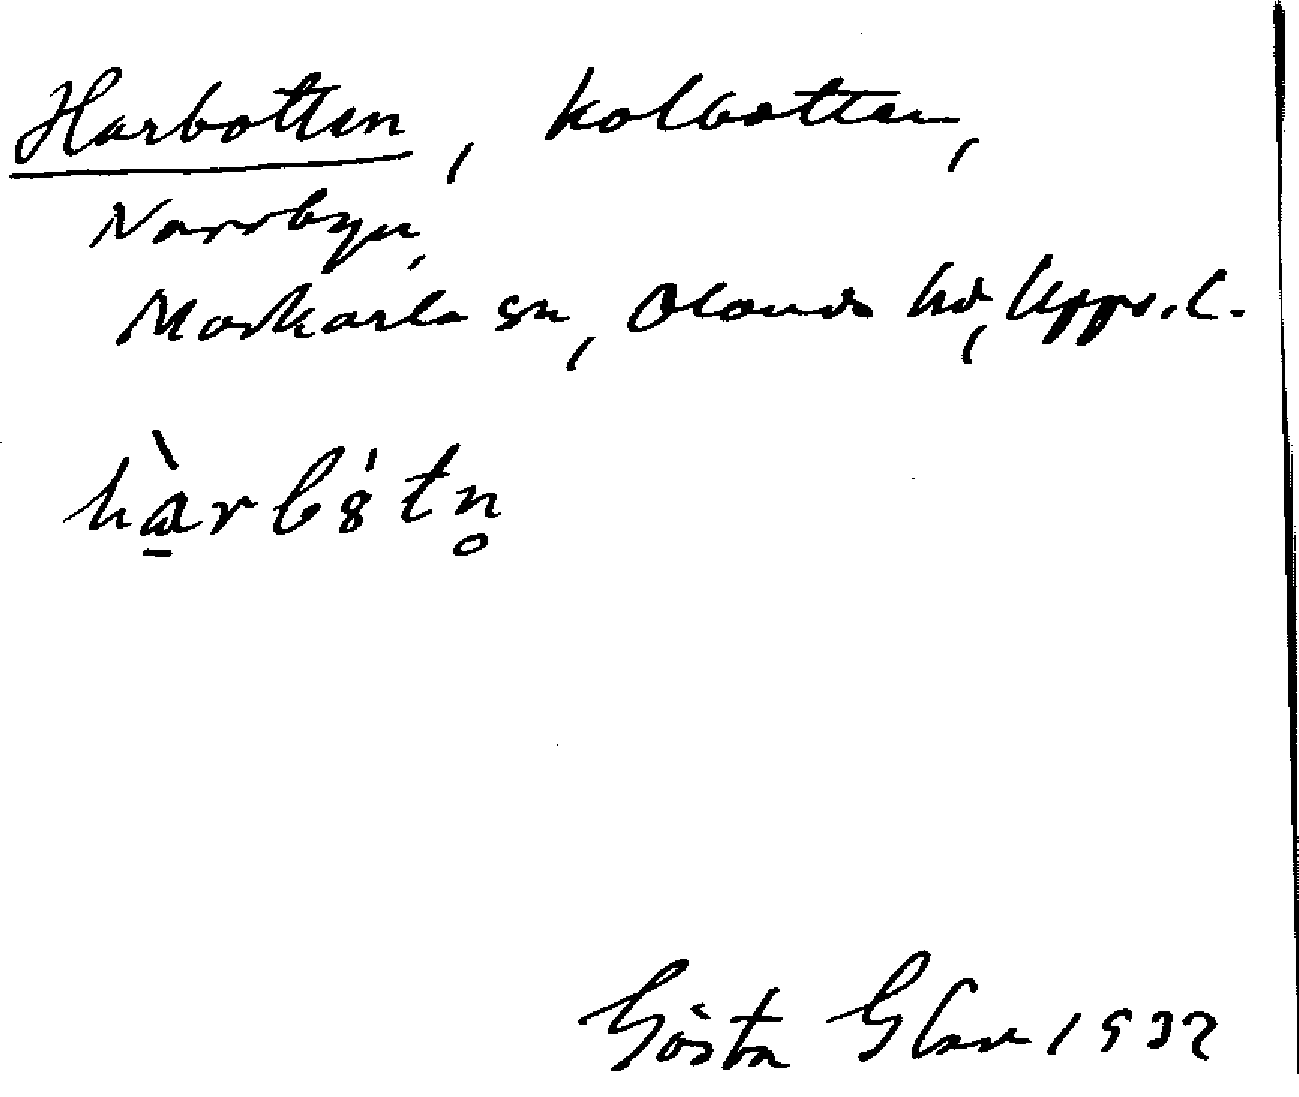 Harbotten, kolbotten,
Norrbyn,
Morkarla sn, Olands hd, Upps. l.
hàrb8̍tn̥
Gösta Glase 1932